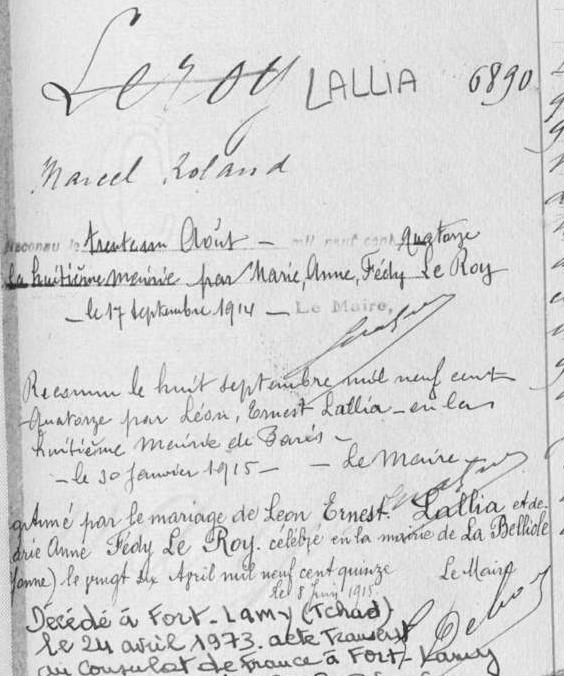 Leroy LALLIA 6890
Marcel Roland
Reconnu le trente un Août — mil neuf cent Quatorze
la huitième mairie par Marie, Anne, Fédy Le Roy
— le 17 septembre 1914 — Le Maire,
Reconnu le huit septembre mil neuf cent
Quatorze par Léon, Ernest Lallia — en la
huitième mairie de Paris —
— le 30 Janvier 1915 — — Le Maire
gitimé par le mariage de Léon Ernest Lallia et de
arie Anne Fédy Le Roy. célébré en la mairie de La Belliole
(Yonne) le vingt six Avril mil neuf cent quinze Le Maire
le 8 Juin 1915
Décédé à Fort-Lamy (Tchad)
le 24 avril 1973. acte transcrit
au Consulat de France à Fort-Lamy